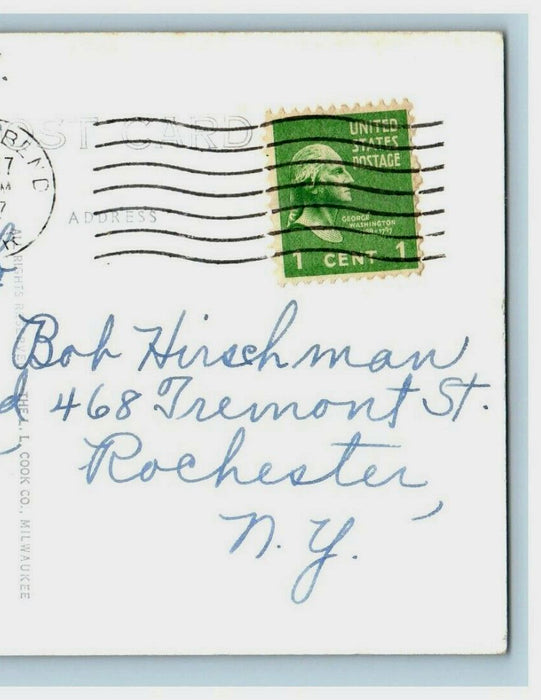 POST CARD
BEND
7
M
7
ADDRESS
UNITED
STATES
POSTAGE
GEORGE
WASHINGTON
1 CENT 1
Bob Hirschman
468 Tremont St.
Rochester,
N.Y.
ALL RIGHTS RESERVED THE L. L. COOK CO., MILWAUKEE